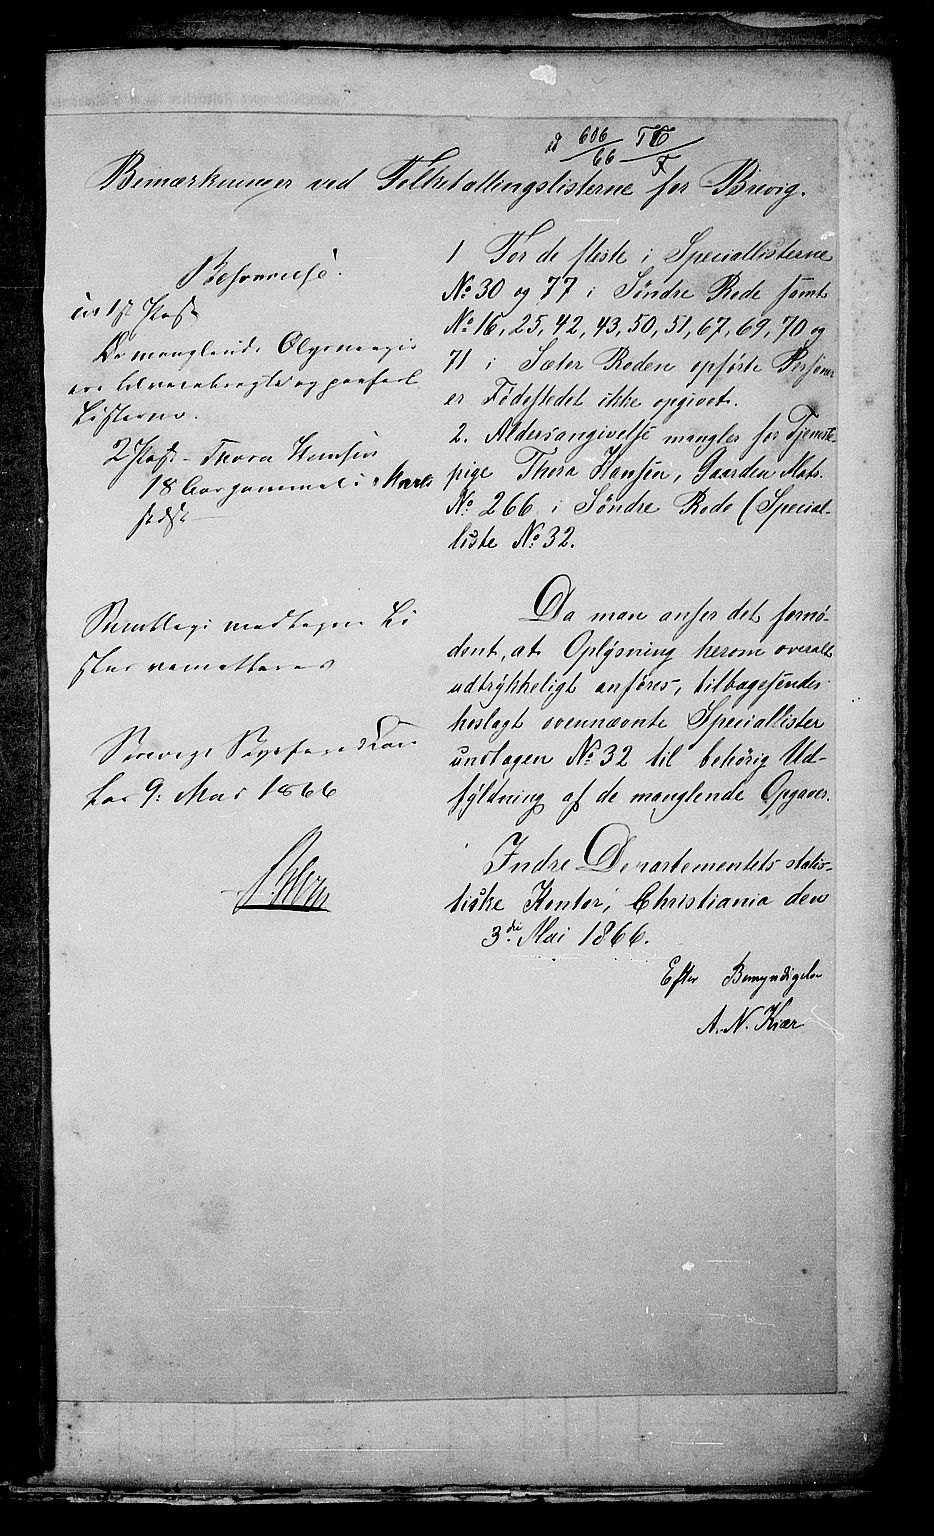 d 606/66 TC/F
Bemærkninger ved Folketællingslisterne for Brevig.
Besvarelse.
1st Post
De manglende Olysninger
ere tilveiebragte og paaført
Listerne.
2 Post - Thora Hansen
18 Aar gammel i
Samtlige modtagne Li
ster remitteres
Brevigs Byfoged Con
tor 9. Mai 1866
1 For de fleste i Speciallisterne
No 30 og 77 i Søndre Rode samt
No 16, 25, 42, 43, 50, 51, 67, 69, 70 og
71 i Sæter Roden opførte Personer
er Fødestedet ikke opgivet.
2. Aldersangivelse mangler for Tjeneste-
pige Thora Hansen, Gaarden Mats.
No 266 i Søndre Rode (Special-
liste No 32.
Da man anser det fornø-
dent, at Oplysning herom overalt
udtrykkeligt anføres, tilbagesendes
hoslagt ovennævnte Speciallister
undtagen No 32 til behørig Ud-
fyldning af de manglende Opgaver.
Indre Departementets statis-
tiske Kontor, Christiania den
3die Mai 1866.
Efter Bemyndigelse
A. N. Kiær